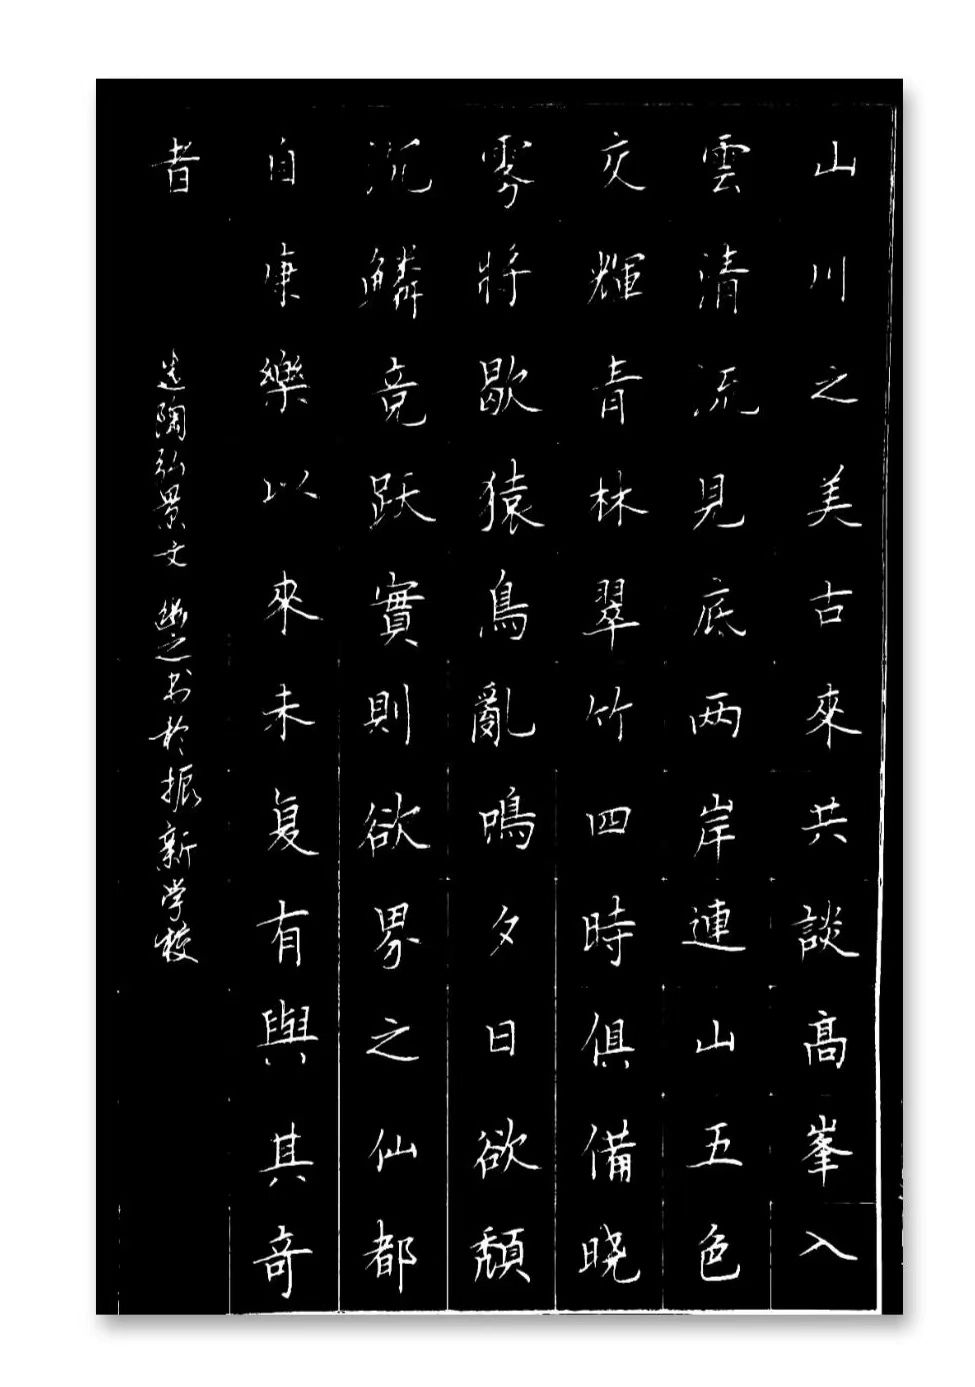 山川之美古來共談高峯入
雲清流見底两岸連山五色
交輝青林翠竹四時俱備晓
雾將歇猿鳥亂鳴夕日欲頹
沉鱗竞跃實則欲界之仙都
自康樂以來未复有與其奇
者
陶弘景文 之书於振新学校